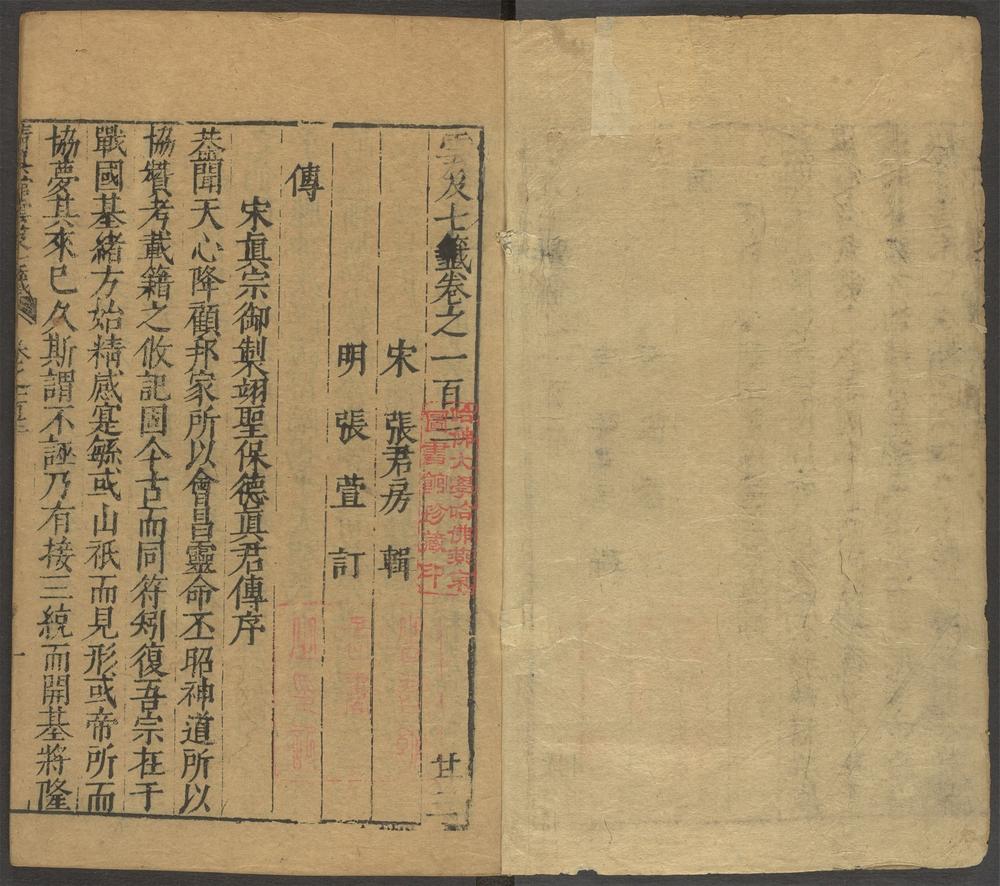 雲笈七籤卷之一百三
廿二
宋 張君房 輯
明 張萱 訂
傳
宋眞宗御製翊聖保德眞君傳序
恭聞天心降顧邦家所以會昌靈命丕昭神道所以
協贊考載籍之攸記固今古而同符矧復吾宗在于
戰國基緒方始精感寔繇或山祇而見形或帝所而
協夢其來已久斯謂不誣乃有接三統而開基將隆
一
哈佛大學哈佛燕京
圖書館珍藏印